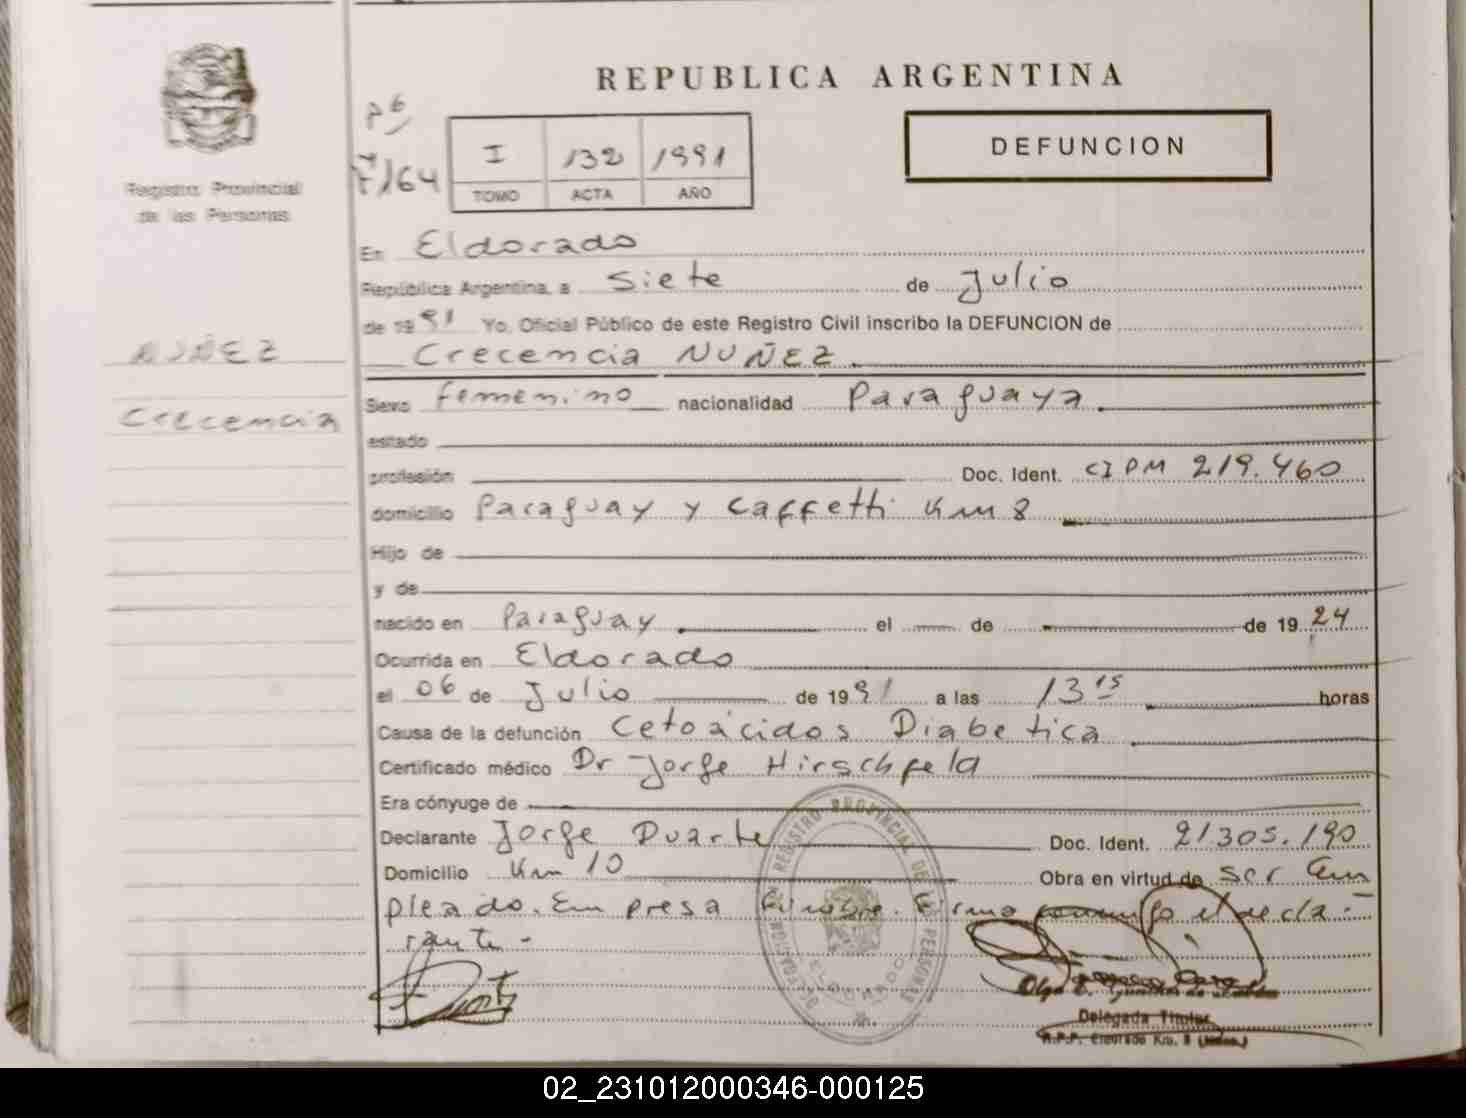 REPUBLICA ARGENTINA
DEFUNCION
Registro Provincial
de las Personas
NUÑEZ
Crecencia
I 132 1991
TOMO ACTA AÑO
En Eldorado
República Argentina, a siete de Julio
de 1991 Yo, Oficial Público de este Registro Civil inscribo la DEFUNCION de
Crecencia NUÑEZ
Sexo femenino nacionalidad Paraguaya
estado
profesión Doc. Ident. CI PM 219.460
domicilio Paraguay y Caffetti Km 8
Hijo de
y de
nacido en Paraguay el de de 1924
Ocurrida en Eldorado
el 06 de Julio de 1991 a las 13 15 horas
Causa de la defunción Cetoácidos Diabetica
Certificado médico Dr Jorge Hirschfeld
Era cónyuge de
Declarante Jorge Duarte Doc. Ident. 21.305.190
Domicilio Km 10 Obra en virtud de ser Em
pleado. Empresa Funebre. Firma conmigo el decla-
rante -
REGISTRO PROVINCIAL DE LAS PERSONAS
DELEGACION
ELDORADO
Olga
Delegada Titular
R.P.P. Eldorado Km. 8 (Mnes.)
02_231012000346-000125